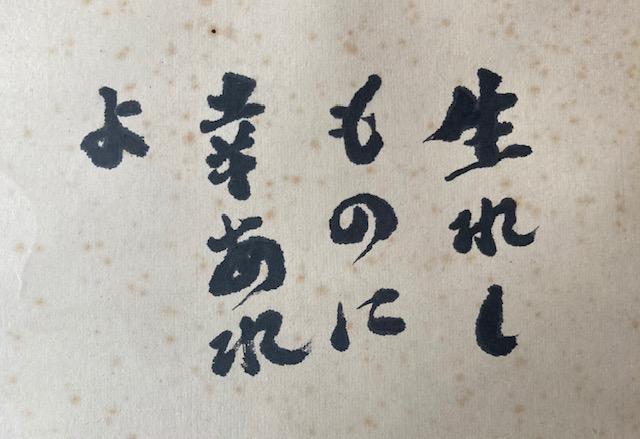 生れし
ものに
幸あれ
よ